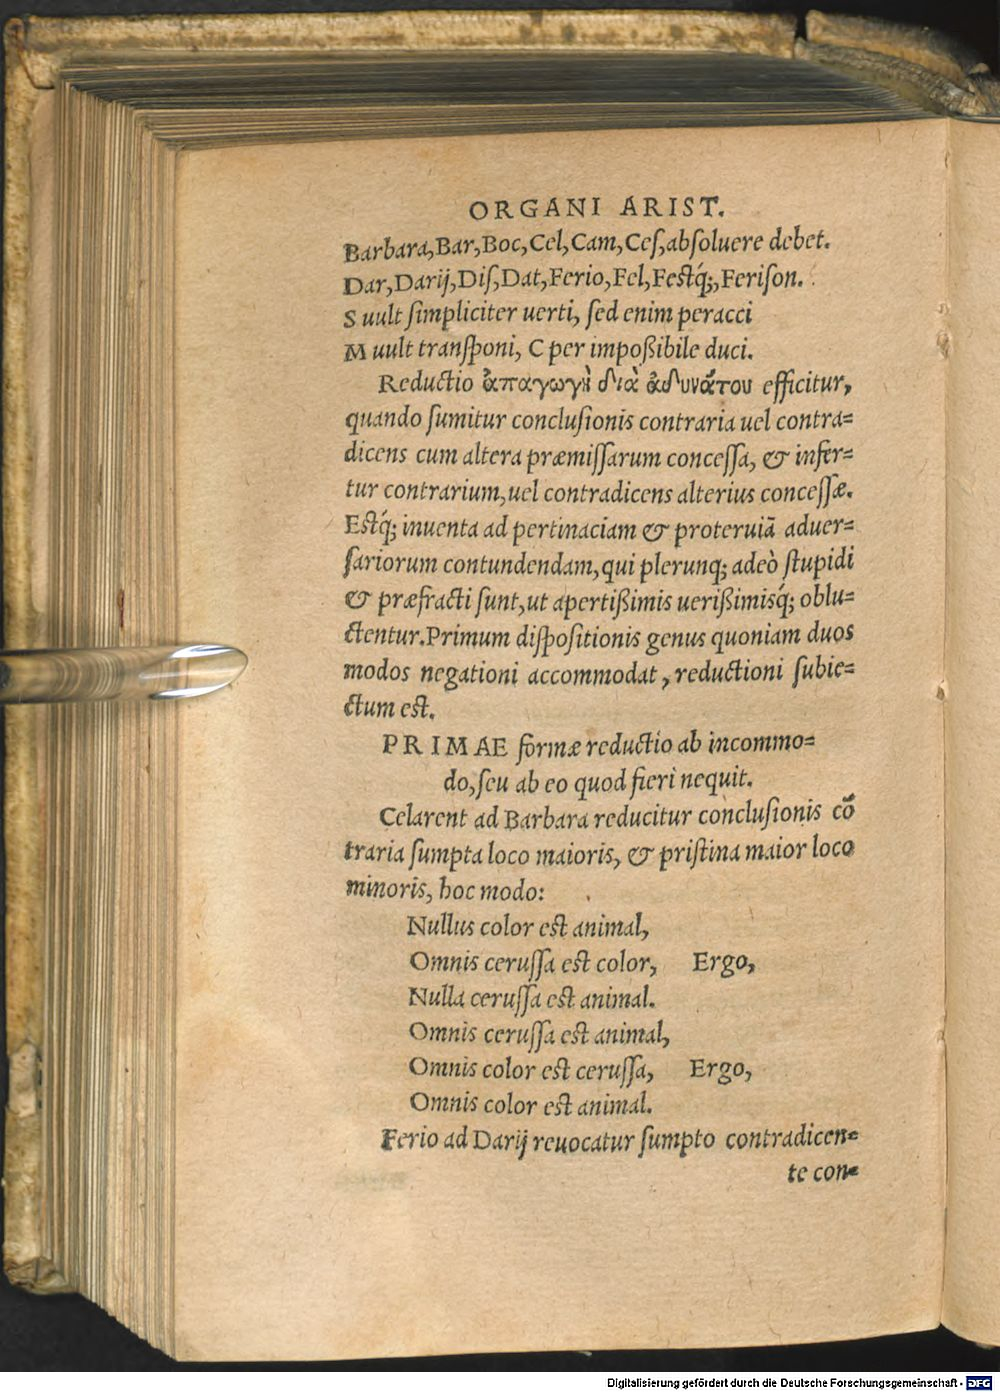 ORGANI ARIST.
Barbara, Bar, Boc, Cel, Cam, Ceſ, abſoluere debet.
Dar, Darij, Diſ, Dat, Ferio, Fel, Feſtq́;, Feriſon.
S uult ſimpliciter uerti, ſed enim peracci
M uult tranſponi, C per impoßibile duci.
Reductio ἀπαγωγὴ διὰ ἀδυνάτου efficitur,
quando ſumitur concluſionis contraria uel contra=
dicens cum altera præmiſſarum conceſſa, & infer=
tur contrarium, uel contradicens alterius conceſſæ.
Eſtq́; inuenta ad pertinaciam & proteruiā aduer=
ſariorum contundendam, qui plerunq; adeò ſtupidi
& præfracti ſunt, ut apertißimis uerißimisq́; oblu=
ctentur. Primum diſpoſitionis genus quoniam duos
modos negationi accommodat, reductioni ſubie=
ctum eſt.
PRIMAE formæ reductio ab incommo=
do, ſeu ab eo quod fieri nequit.
Celarent ad Barbara reducitur concluſionis cō
traria ſumpta loco maioris, & priſtina maior loco
minoris, hoc modo:
Nullus color eſt animal,
Omnis ceruſſa eſt color, Ergo,
Nulla ceruſſa eſt animal.
Omnis ceruſſa eſt animal,
Omnis color eſt ceruſſa, Ergo,
Omnis color eſt animal.
Ferio ad Darij reuocatur ſumpto contradicen=
te con=
Digitalisierung gefördert durch die Deutsche Forschungsgemeinschaft - DFG